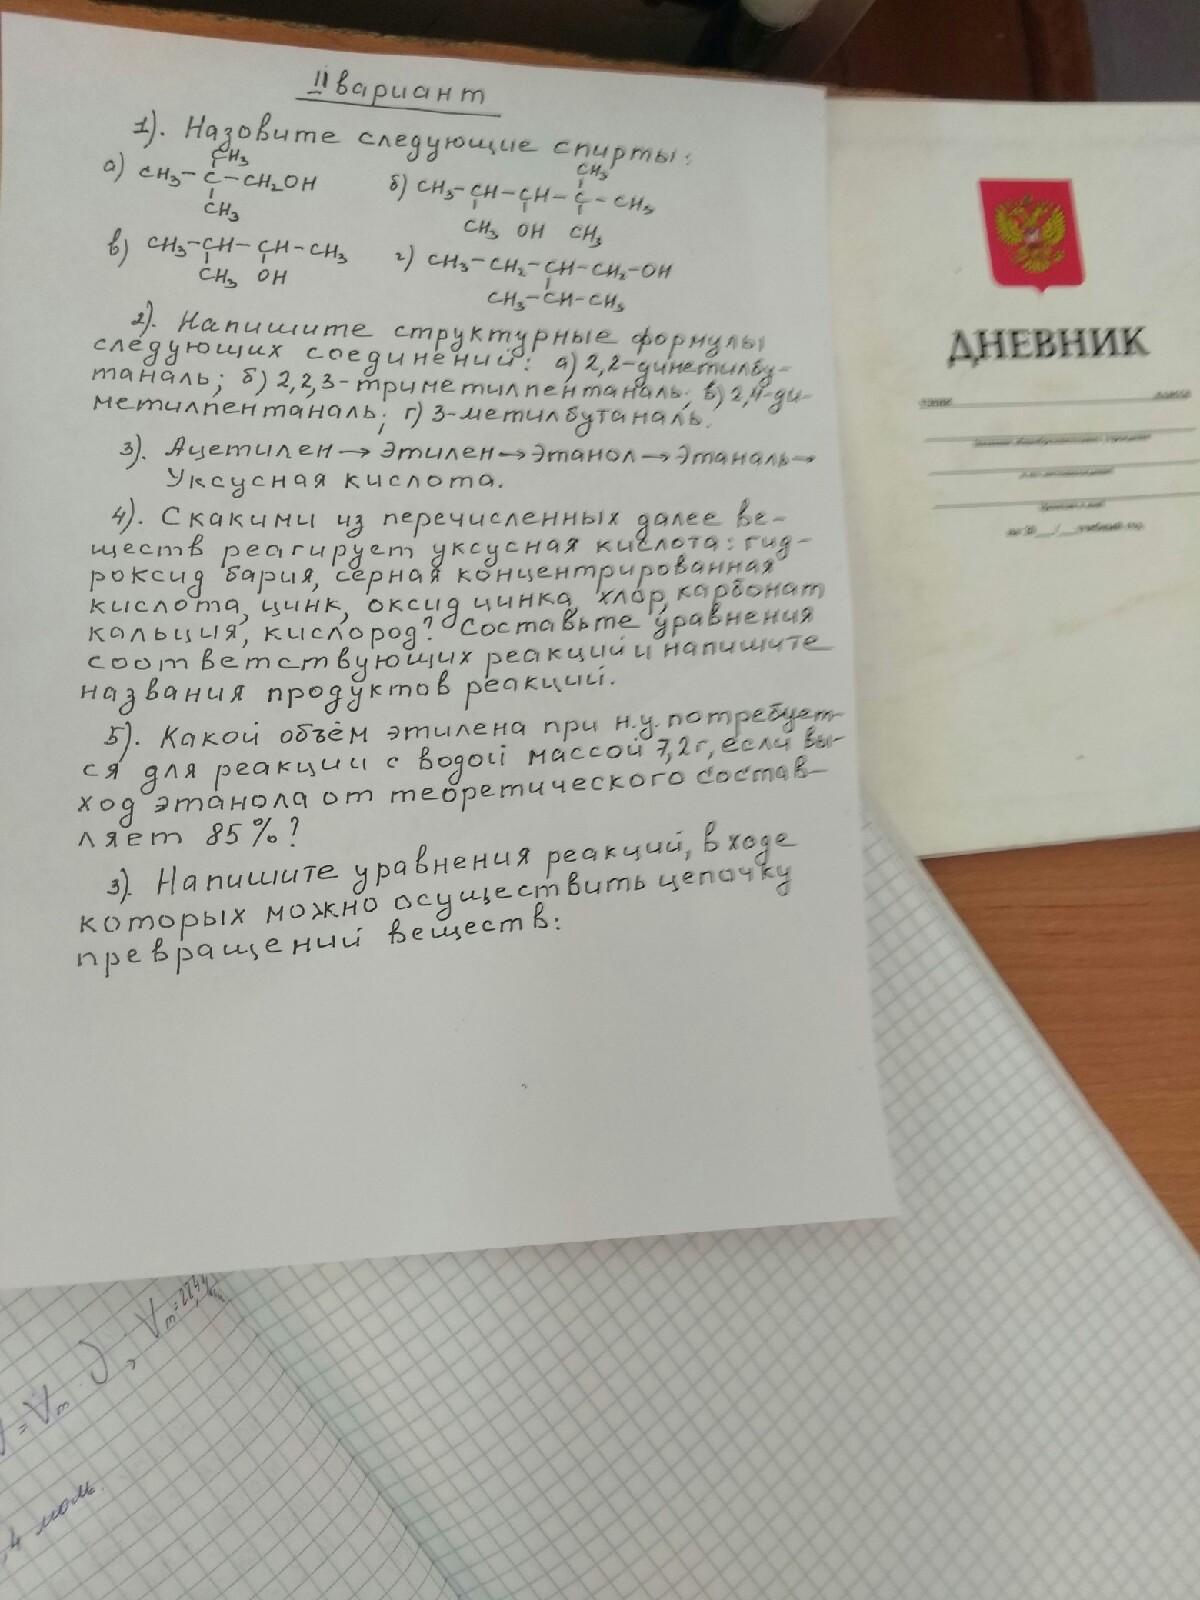 II вариант
1). Назовите следующие спирты:
CH3 CH3
а) CH3-C-CH2OH б) CH3-CH-CH-C-CH3
CH3 CH3 OH CH3
в) CH3-CH-CH-CH3 г) CH3-CH2-CH-CH2-OH
CH3 OH CH3-CH-CH3
2). Напишите структурные формулы
следующих соединений: а) 2,2-диметилбу-
таналь; б) 2,2,3-триметилпентаналь; в) 2,4-ди-
метилпентаналь; г) 3-метилбутаналь.
3). Ацетилен→этилен→этанол→этаналь→
Уксусная кислота.
4). С какими из перечисленных далее ве-
ществ реагирует уксусная кислота: гид-
роксид бария, серная концентрированная
кислота, цинк, оксид цинка, хлор, карбонат
кальция, кислород? Составьте уравнения
соответствующих реакций и напишите
названия продуктов реакций.
5). Какой объём этилена при н.у. потребует-
ся для реакции с водой массой 7,2г, если вы-
ход этанола от теоретического состав-
ляет 85%?
3). Напишите уравнения реакций, в ходе
которых можно осуществить цепочку
превращений веществ:
ДНЕВНИК
=Vm · ∂, Vm=
4 моль